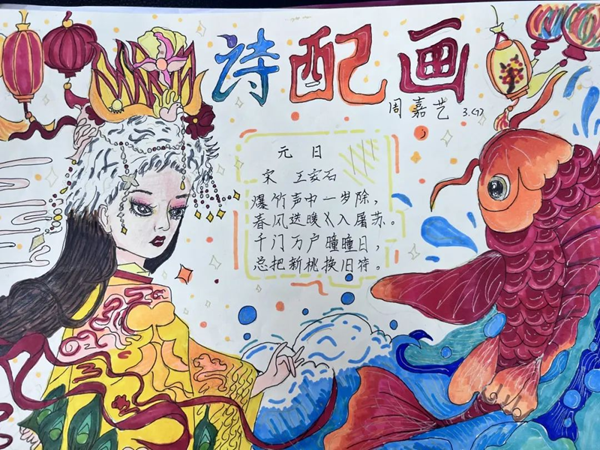 诗配画
周嘉艺 3.(7)
元日
宋 王安石
爆竹声中一岁除,
春风送暖入屠苏。
千门万户瞳瞳日,
总把新桃换旧符。